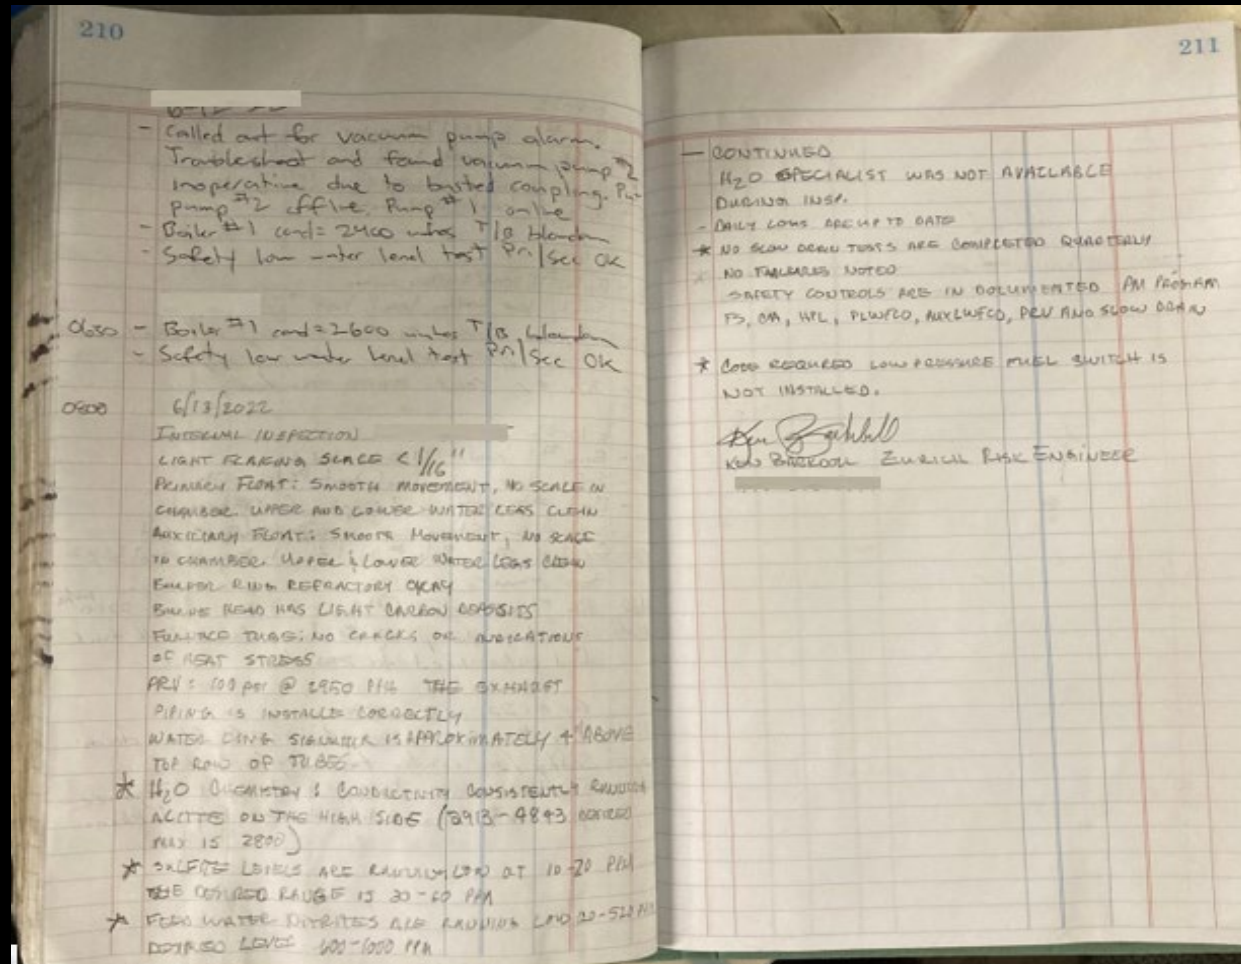 210
- Called out for vacuum pump alarm.
Troubleshoot and found vacuum pump #2
inoperative due to busted coupling. Put
pump #2 offline. Pump #1 online
- Boiler #1 cond = 2400 mhos T/B blowdown
- Safety low water level test Pri/Sec OK
0630 - Boiler #1 cond = 2600 mhos T/B blowdown
- Safety low water level test Pri/Sec OK
0800 6/13/2022
INTERNAL INSPECTION
LIGHT FLAKING SCALE < 1/16"
PRIMARY FLOAT: SMOOTH MOVEMENT, NO SCALE IN
CHAMBER. UPPER AND LOWER WATER LEGS CLEAN
AUXILIARY FLOAT: SMOOTH MOVEMENT, NO SCALE
IN CHAMBER. UPPER & LOWER WATER LEGS CLEAN
RING REFRACTORY OKAY
HEAD HAS LIGHT CARBON DEPOSITS
FURNACE TUBE: NO CRACKS OR INDICATIONS
OF HEAT STRESS
PRV: 100 psi @ 2950 PPH THE EXHAUST
PIPING IS INSTALLE CORRECTLY
WATER LINE IS APPROXIMATELY 4" ABOVE
TOP ROW OF TUBES
* H2O CHEMISTRY: CONDUCTIVITY CONSISTENTLY RUNNING
ON THE HIGH SIDE (2913-4843 DESIRED
MAX IS 2800)
* SULFITE LEVELS ARE RUNNING LOW AT 10-20 PPM
THE DESIRED RANGE IS 30-60 PPM
* FEED WATER NITRITES ARE RUNNING LOW 20-520 PPM
DESIRED LEVEL 600-1000 PPM
211
- CONTINUED
H2O SPECIALIST WAS NOT AVAILABLE
DURING INSP.
- DAILY LOGS ARE UP TO DATE
* NO SLOW DRAIN TESTS ARE COMPLETED QUARTERLY
NO FAILURES NOTED
SAFETY CONTROLS ARE IN DOCUMENTED PM PROGRAM
FS, HPL, PLWFCO, AUXLWFCO, PRV AND SLOW DRAIN
* CODE REQUIRED LOW PRESSURE FUEL SWITCH IS
NOT INSTALLED.
ZURICH RISK ENGINEER